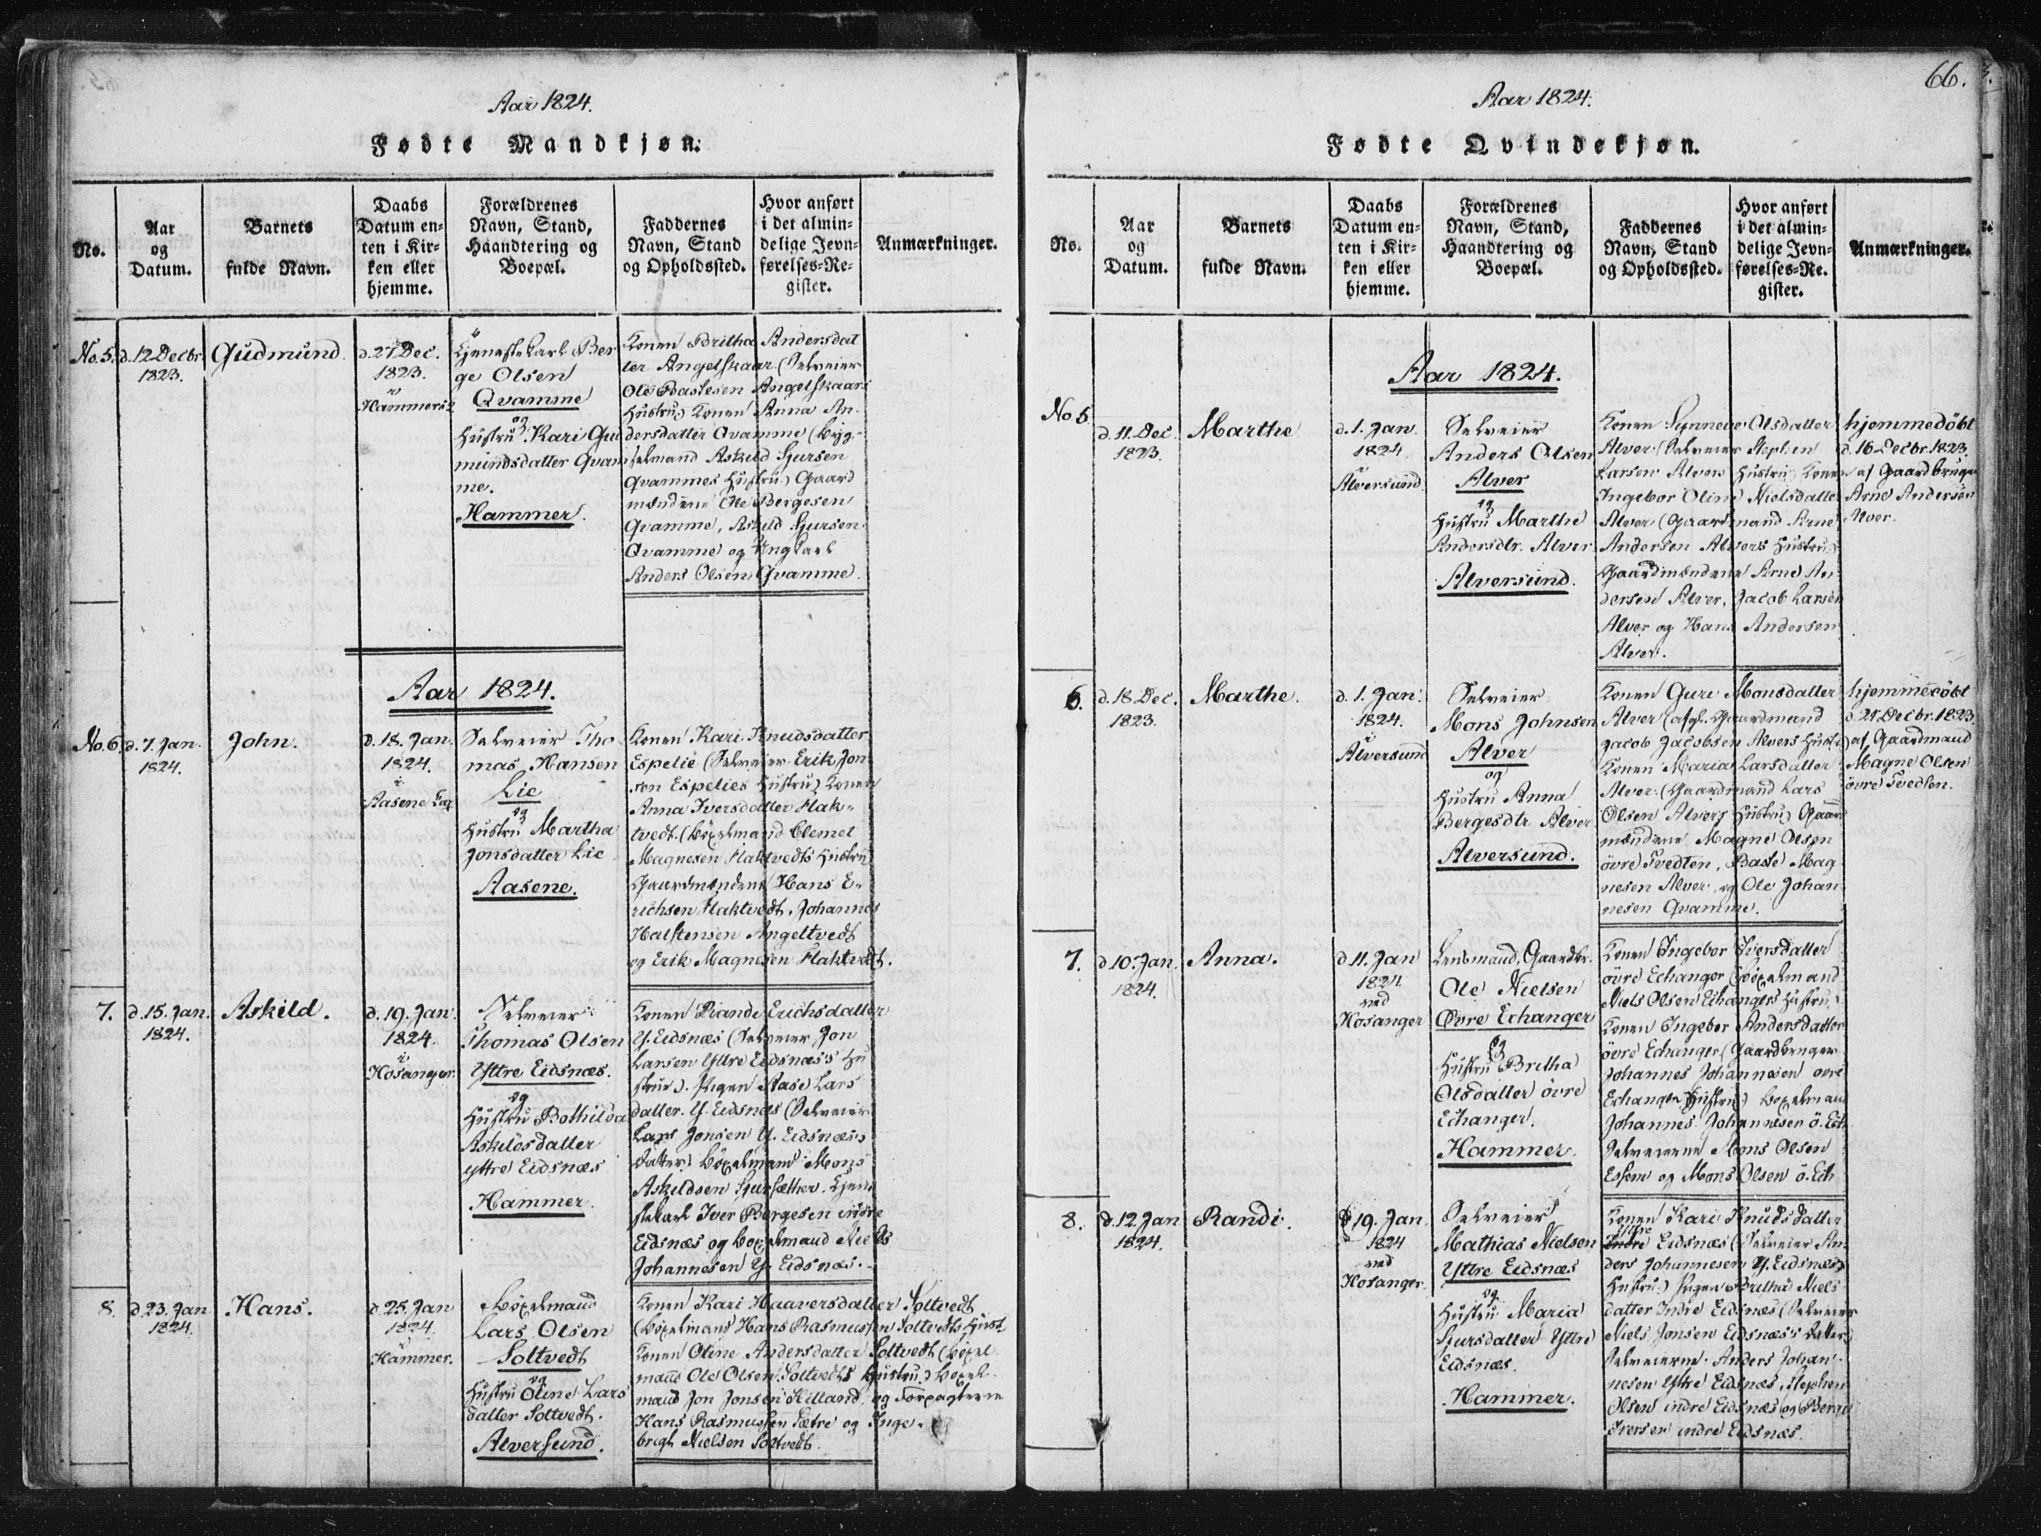 Aar 1824.
Fødte Mandkjøn.
No.
Aar
og
Datum.
Barnets
fulde Navn.
Daabs
Datum en-
ten i Kir-
ken eller
hjemme.
Forældrenes
Navn, Stand,
Haandtering og
Boepæl.
Faddernes
Navn, Stand
og Opholdssted.
Hvor anført
i det almin-
delige Jevn-
førelses-Re-
gister.
Anmærkninger.
No. 5.
d. 12 Decbr
1823.
Gudmund.
d. 27 Dec.
1823.
i
Hammers
Tjenestekarl Ber
ge Olsen
Qvamme
og
Hustru Kari Gud
mundsdatter Qvam
me.
Hammer.
Konen Britha Andersdat
ter Angelskaar (Selveier
Ole Bastesen Angelskaars
Hustru) Konen Anna An-
dersdatter Qvamme (Byg-
selmand Askild Sjursen
Qvammes Hustru) Gaard
mændene Ole Bergesen
Qvamme, Askild Sjursen
Qvamme og Ungkarl
Anders Olsen Qvamme.
Aar 1824.
No. 6
d. 7. Jan.
1824.
John.
d. 18. Jan.
1824.
i
Aasene
Selveier Tho-
mas Hansen
Lie
og
Hustru Martha
Jonsdatter Lie
Aasene.
Konen Kari Knudsdatter
Espelie (Selveier Erik Jon
sen Espelies Hustru) Konen
Anna Iversdatter Hak-
tvedt (Böxelmand Clemet
Magnesen Haktvedts Hustru)
Gaardmændene Hans E-
richsen Haktvedt, Johannes
Halstensen Angeltvedt
og Erik Magnesen Haktvedt.
7.
d. 15. Jan.
1824.
Askild.
d. 19. Jan.
1824.
i
Hosanger.
Selveier
Thomas Olsen
Yttre Eidsnæs.
og
Hustru Bothilda
Askildsdatter
yttre Eidsnæs
Hammer.
Konen Rande Erichsdatter
Y. Eidsnæs (Selveier Jon
Larsen Yttre Eidsnæs's Hu
strue). Pigen Aase Lars
datter. Y. Eidsnæs (Selveier
Lars Jonsen Y. Eidsnæs's
datter) Böxelmand Mons
Askildsen Sjursæther. Tjene
stekarl Iver Bergesen indre
Eidsnæs og Böxelmand Niels
Johannesen Y. Eidsnæs.
8.
d. 23. Jan
1824.
Hans.
d. 25. Jan
1824.
Hammer.
Böxelmand
Lars Olsen
Soltvedt
og
Hustru Oline Lars
datter Soltvedt.
Alversund.
Konen Kari Haaversdatter Soltvedt
(Böxelmand Hans Rasmussen Soltvedts Hust
Konen Oline Andersdatter Soltvedt (Böxel
mand Ole Olsen Soltvedts Hustru.) Böxel
mand Jon Jonsen Hilland og Forpagterne
Hans Rasmussen Sætre og Inge-
brigt Nielsen Soltvedt.
66.
Aar 1824.
Fødte Qvindekjøn.
No.
Aar
og
Datum.
Barnets
fulde Navn.
Daabs
Datum en-
ten i Kir-
ken eller
hjemme.
Forældrenes
Navn, Stand,
Haandtering og
Boepæl.
Faddernes
Navn, Stand
og Opholdssted.
Hvor anført
i det almin-
delige Jevn-
førelses-Re-
gister.
Anmærkninger.
Aar 1824.
No 5
d. 11. Dec.
1823.
Marthe
d. 1. Jan
1824.
i
Alversund
Selveier
Anders Olsen
Alver
og
Hustru Marthe
Andersdtr. Alver
Alversund.
Konen Synneve Olsdatter
Alver (Selveier Stephen
Larsen Alvers Hustru) Konen
Ingebor Oline Nielsdatter
Alver (Gaardmand Arne
Andersen Alvers Hustru)
Gaardmændene Arne An-
dersen Alver, Jacob Larsen
Alver og Hans Andersen
Alver.
hjemmedöbt
d. 16 Decbr. 1823.
af Gaardbruger
Arne Andersen
Alver.
6.
d. 18 Dec.
1823.
Marthe.
d. 1. Jan.
1824.
i
Alversund
Selveier
Mons Johnsen
Alver
og
Hustru Anna
Bergesdtr Alver
Alversund.
Konen Guri Monsdatter
Alver (afgl. Gaardmand
Jacob Jacobsen Alvers Hustr.)
Konen Maria Larsdatter
Alver. (Gaardmand Lars
Olsen Alvers Hustru) Gaard
mændene Magne Olsen
övre Tvedten, Baste Mag
nesen Alver, og Ole Johan
nesen Qvamme.
hjemmedöbt
d. 21 Decbr. 1823.
af Gaardmand
Magne Olsen
övre Tvedten.
7.
d. 10. Jan.
1824.
Anna.
d. 11. Jan
1824
ved
Hosanger
Lensmand, Gaardbr.
Ole Nielsen
Øvre Echanger
og
Hustru Britha
Olsdatter övre
Echanger.
Hammer.
Konen Ingebor Iversdatter
övre Echanger (Böxelmand
Niels Olsen Echangers Hustru)
Konen Ingebor Andersdatter
övre Echanger (Gaardbruger
Johannes Johannesen övre
Echanger Hustru) Böxelmand
Johannes Johannesen ö. Ech.
Selveierne Mons Olsen
og Mons Olsen ö. Ech
8.
d. 12. Jan
1824.
Randi.
d. 19. Jan.
1824
ved
Hosanger.
Selveier
Mathias Nielsen
Yttre Eidsnæs
og
Hustru Maria
Sjursdatter Yttre
Eidsnæs.
Hammer.
Konen Kari Knudsdatter
yttre
Indre Eidsnæs (Selveier An-
ders Johannesen Y. Eidsnæs's
Hustru) Pigen Britha Niels
datter Indre Eidsnæs (Selveier
Niels Jonsen Eidsnæs's datter)
Selveierne Anders Johan-
nesen Yttre Eidsnæs, Stephen
Olsen indre Eidsnæs og Berge
Iversen indre Eidsnæs.